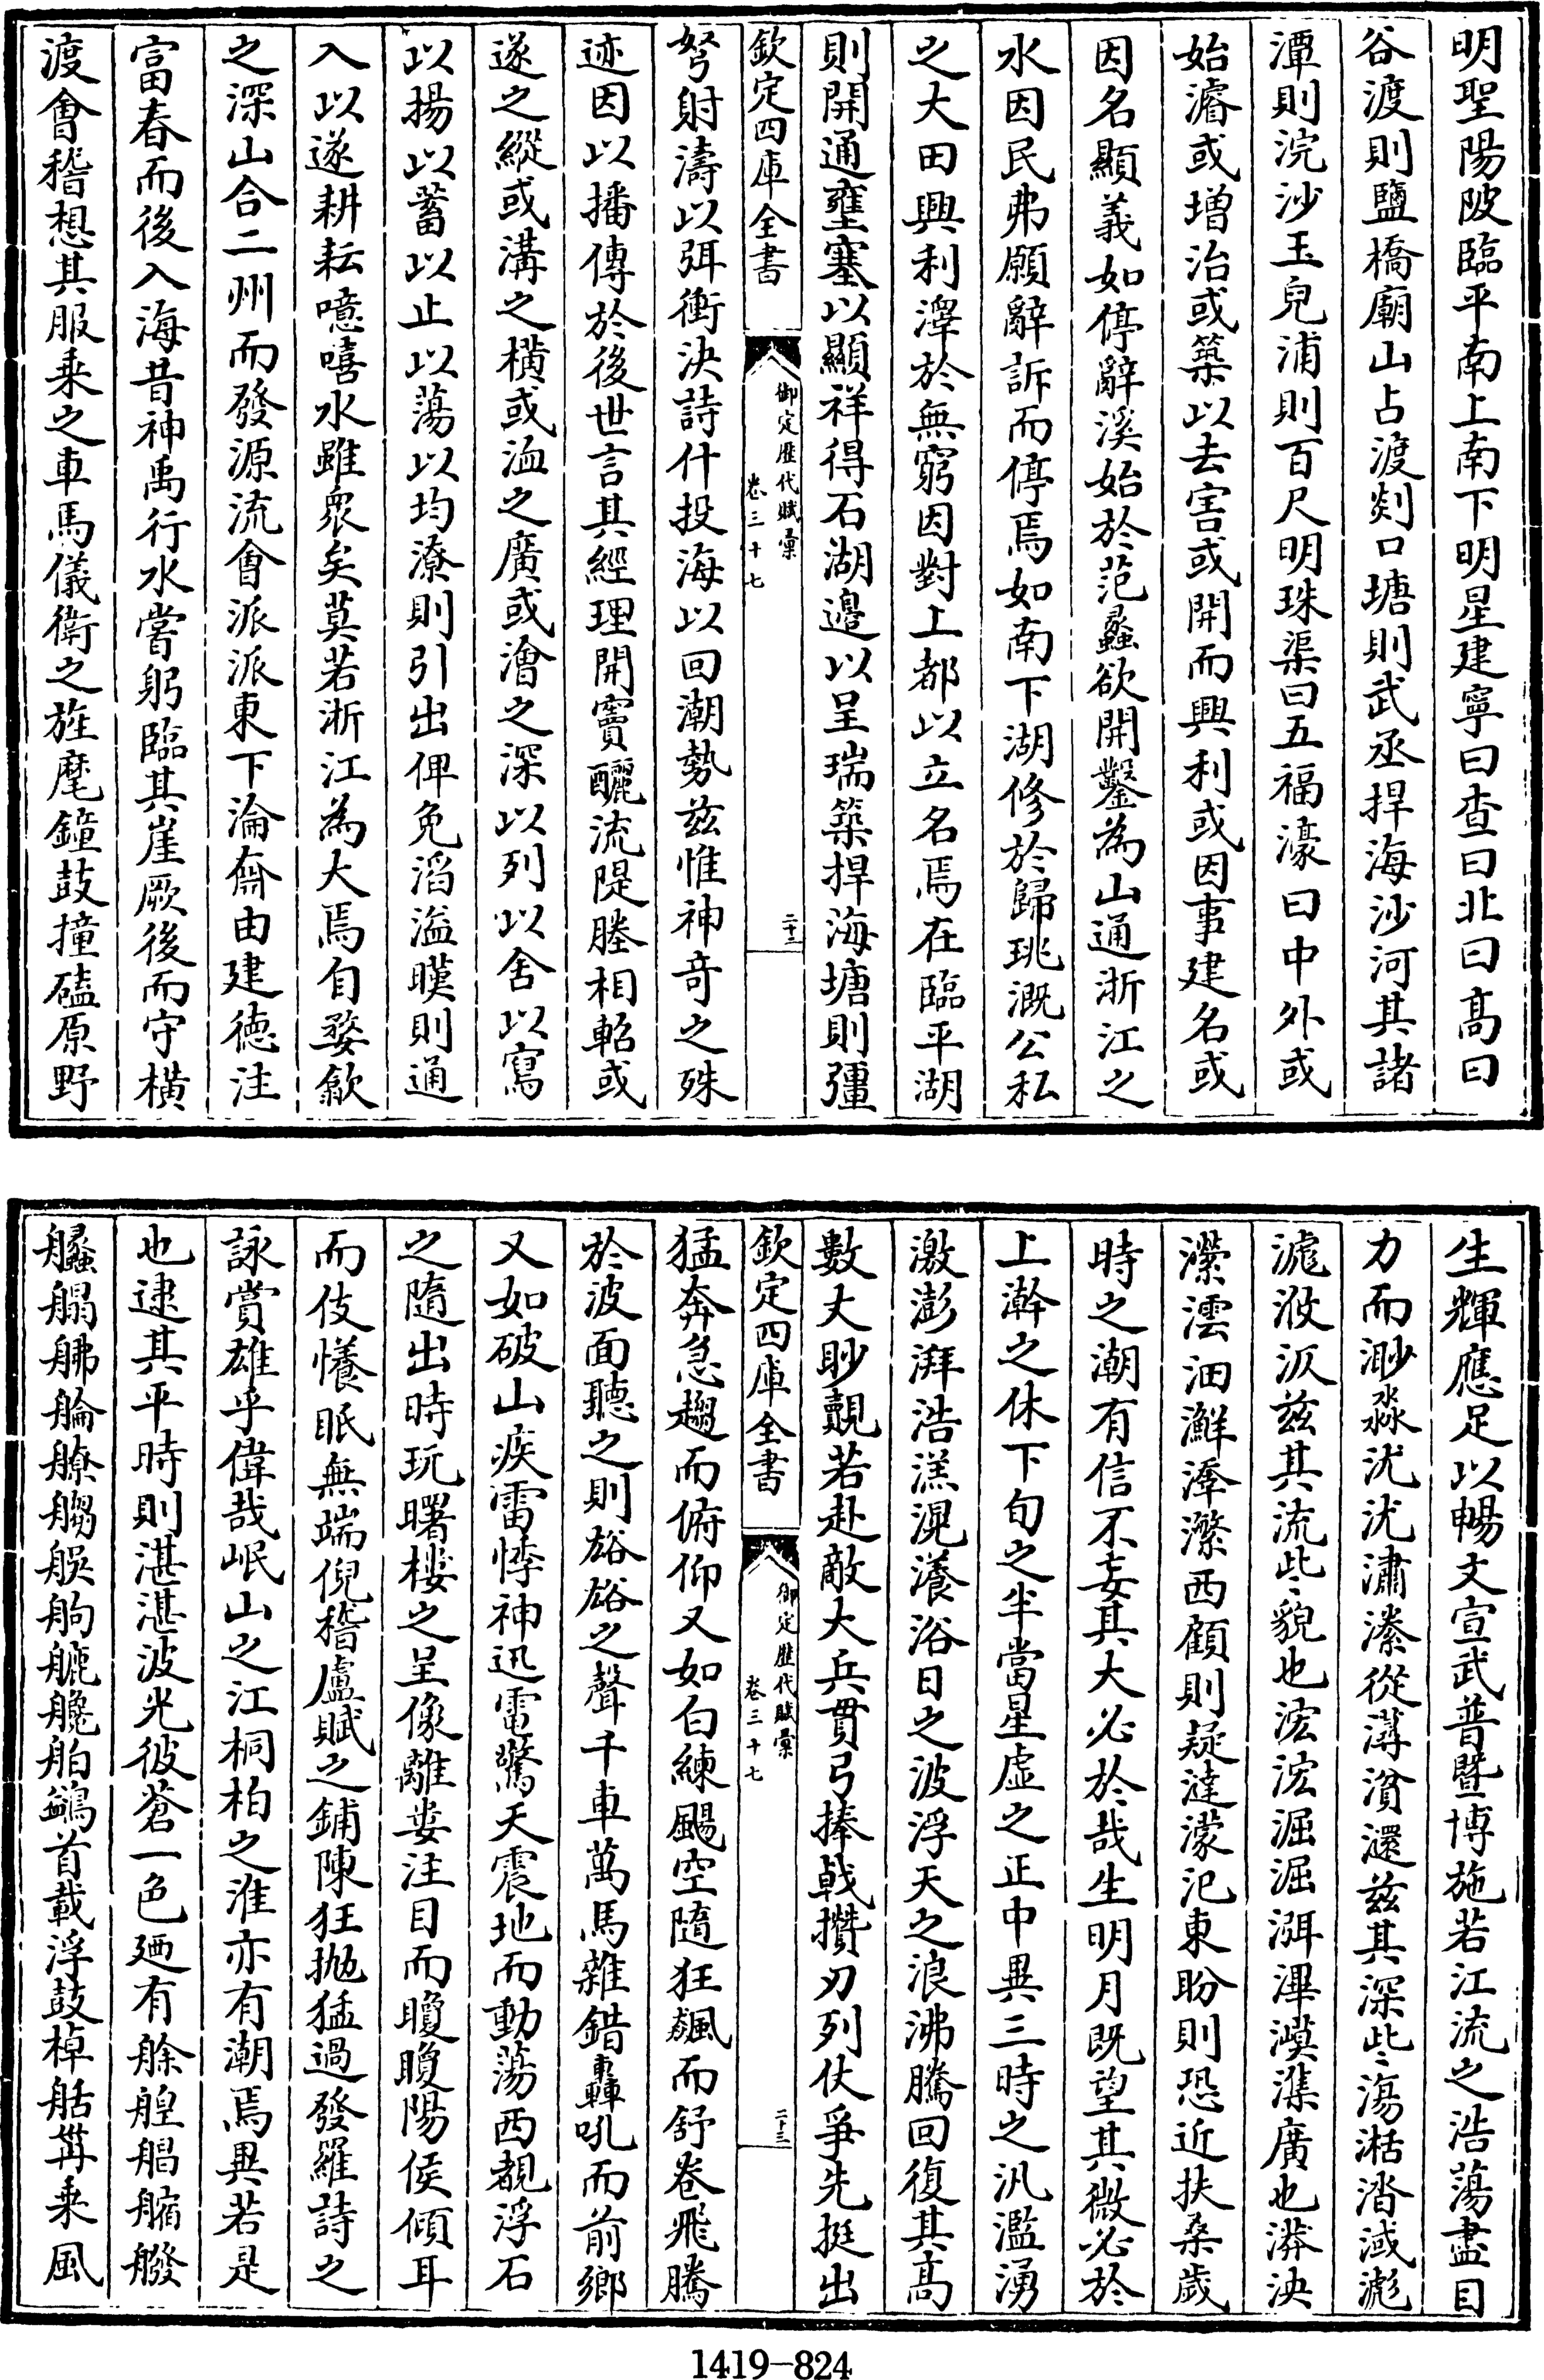 明聖陽陂臨平南上南下明星建寧曰查曰北曰髙曰
谷渡則鹽橋廟山占渡剡口塘則武丞捍海沙河其諸
潭則浣沙玉兒浦則百尺明珠渠曰五福濠曰中外或
始濬或增治或築以去害或開而興利或因事建名或
因名顯義如停辭溪始於范蠡欲開鑿為山通浙江之
水因民弗願辭訴而停焉如南下湖修於歸珧溉公私
之大田興利澤於無窮因對上都以立名焉在臨平湖
則開通壅塞以顯祥得石湖邊以呈瑞築捍海塘則彊
欽定四庫全書
御定歴代賦彙
卷三十七
二十三
弩射濤以弭衝決詩什投海以回潮勢兹惟神奇之殊
迹因以播傳於後世言其經理開竇釃流隄塍相軺或
遂之縱或溝之横或洫之廣或澮之深以列以舍以寫
以揚以蓄以止以蕩以均潦則引出俾免滔溢暵則通
入以遂耕耘噫嘻水雖衆矣莫若浙江為大焉自婺歙
之深山合二州而發源流會派派東下淪㵽由建德注
富春而後入海昔神禹行水嘗躬臨其崖厥後而守横
渡會稽想其服乗之車馬儀衛之旌麾鐘鼓撞磕原野
生輝應足以暢文宣武普暨博施若江流之浩蕩盡目
力而渺㵿沋沋潚潫從溥濱還兹其深些㵝湉涾㳚滮
滮㳊汳兹其流些貌也浤浤淈淈洱㴾漠潗廣也漭泱
瀠澐沺灖㶒瀿西顧則疑達濛汜東盼則恐近扶桑歲
時之潮有信不妄其大必於哉生明月既望其微必於
上澣之休下旬之半當星虛之正中異三時之汎濫湧
激澎湃浩溔滉瀁浴日之波浮天之浪沸騰回復其髙
數丈眇覿若赴敵大兵貫弓捧㦸攢刃列仗爭先挺出
欽定四庫全書
御定歴代賦彙
卷三十七
二十三
猛奔急趨而俯仰又如白練颺空隨狂飆而舒卷飛騰
於波面聽之則谹谹之聲千車萬馬雜錯轟吼而前鄉
又如破山疾雷悸神迅電驚天震地而動蕩西覩浮石
之隨出時玩曙樓之呈像離婁注目而瞍瞍陽侯傾耳
而伎懩眡無端倪稽盧賦之鋪陳狂抛猛過發羅詩之
詠賞雄乎偉哉岷山之江桐柏之淮亦有潮焉異若是
也逮其平時則湛湛波光彼蒼一色廼有艅艎艒䑿艬
䑿艒艀艑艨艒艅舸艬艬舶鷁首載浮鼓棹舐䒀乗風